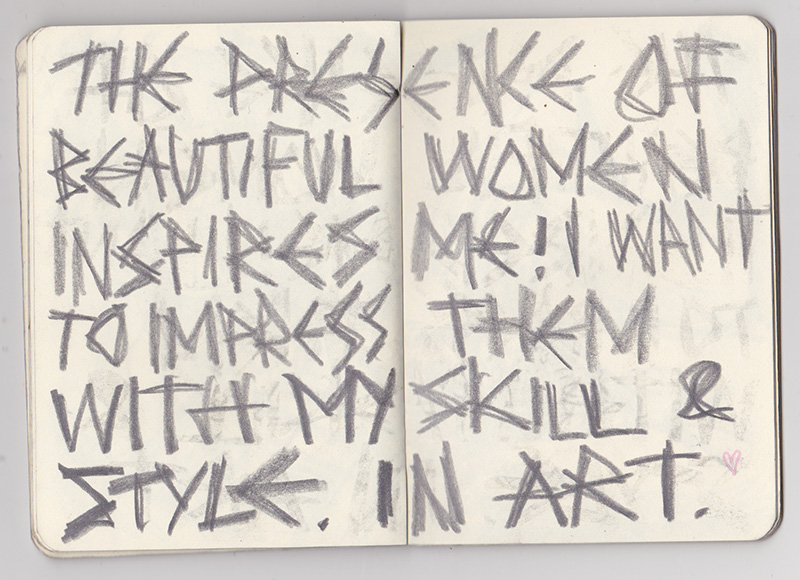 THE PRESENCE OF
BEAUTIFUL WOMEN
INSPIRES ME! I WANT
TO IMPRESS THEM
WITH MY SKILL &
STYLE. IN ART.